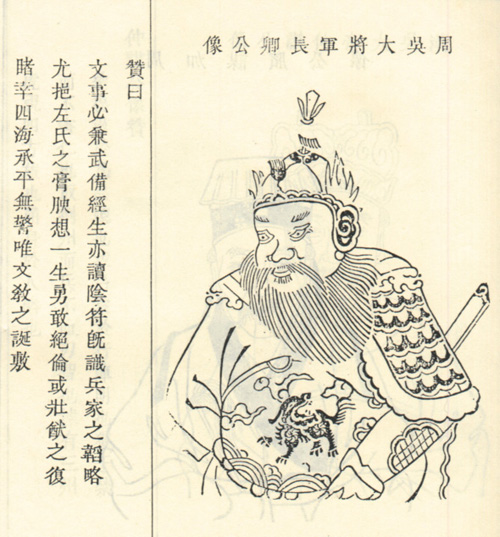 周吳大將軍長卿公像
贊曰
文事必兼武備經生亦讀陰符旣識兵家之韜略
尤挹左氏之膏腴想一生勇敢絕倫或壯猷之復
睹幸四海承平無警唯文敎之誕敷